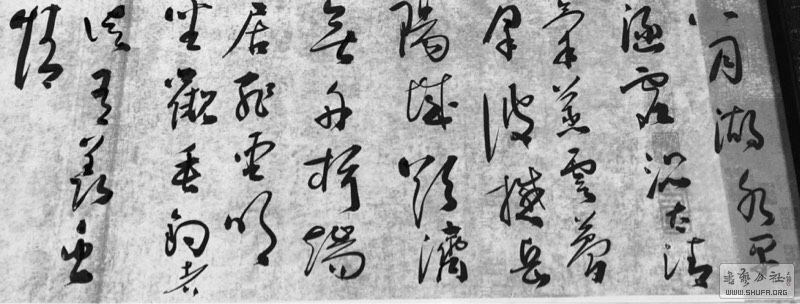 八月湖水平
涵虛混太清
氣蒸雲夢
澤波撼岳
陽城欲濟
無舟楫端
居耻聖明
坐觀垂釣者
徒有羨魚
情
書藝公社
WWW.SHUFA.ORG